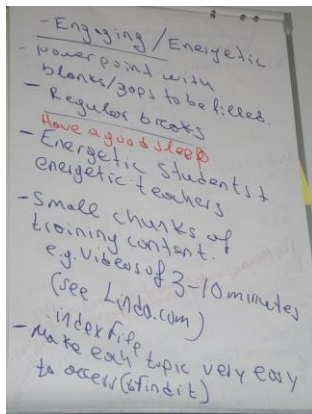 - Engaging / Energetic
- powerpoint with
blanks/gaps to be filled.
- Regular breaks
Have a good sleep
- Energetic Students +
energetic teachers
- Small chunks of
training content.
e.g. Videos of 3-10 minutes
(see Linda.com)
index file
- Make each topic very easy
to access (&find it)